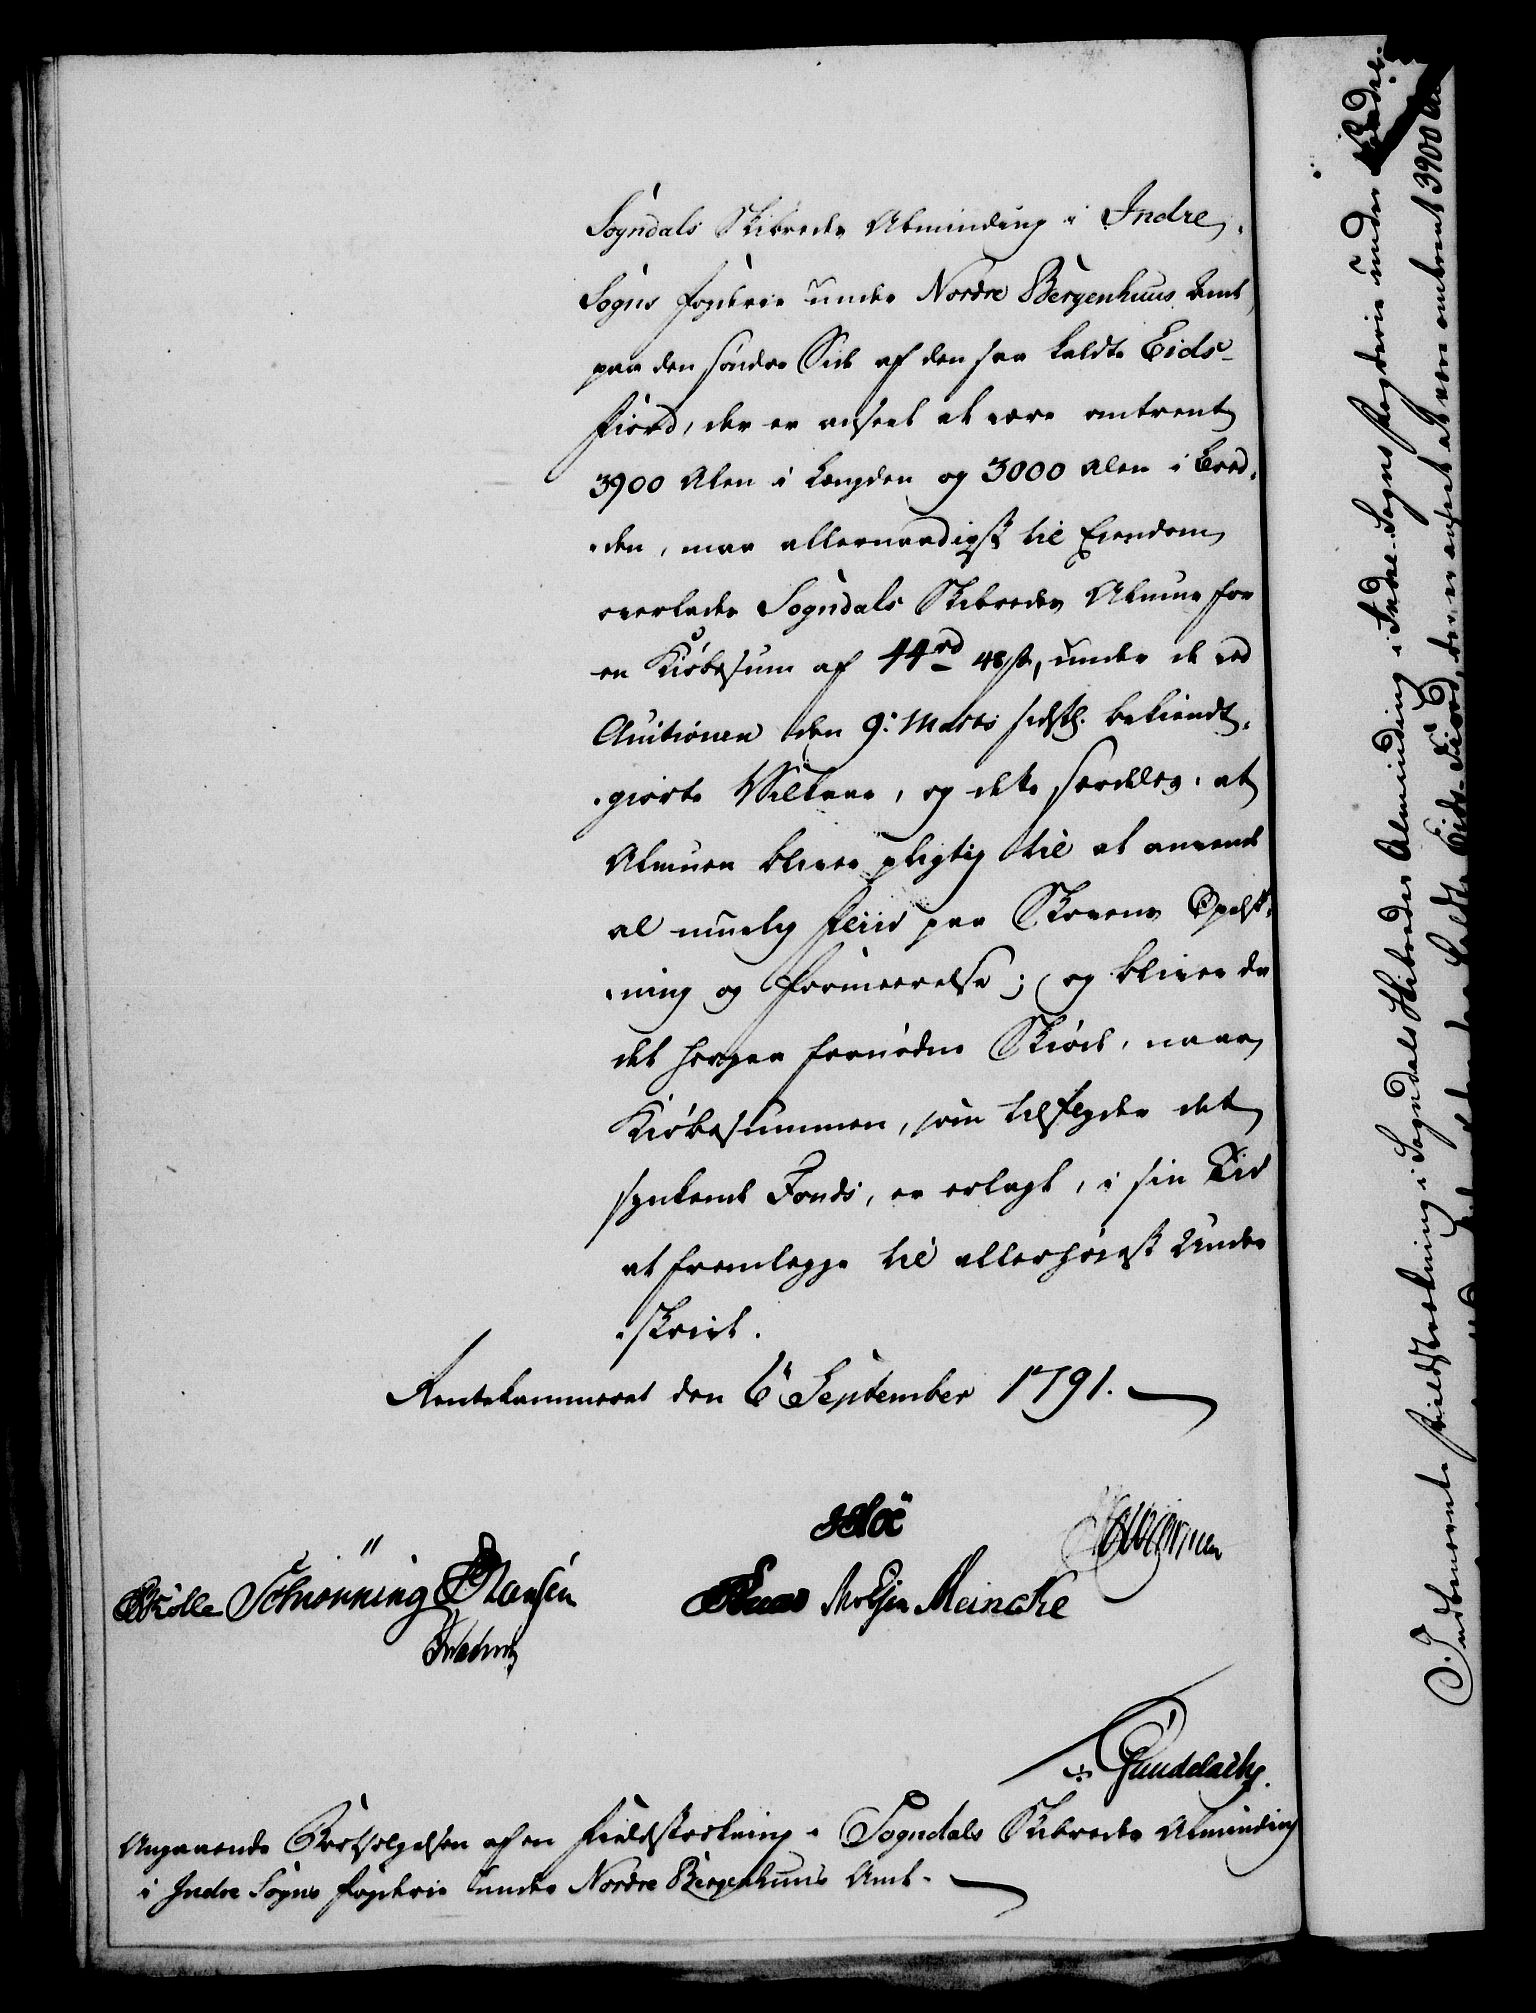 Sogndals Skibredes Alminding i Indre
Sogns Fogderie under Nordre Bergenhuus Amt,
paa den søndre Side af den saa kaldte Eids-
Fiord, der er anseet at være omtrent
3900 Alen i Længden og 3000 Alen i Bred-
-den, maa allernaadigst til Eiendom
overlades Sogndals Skibredes Almue for
en Kiøbesum af 44 rd 48 s, under de ved
Auctionen den 9de Marts sidstl. bekiendt-
-giorte Vilkaar, og dette særdeles, at
Almuen bliver pligtig til at anvende
al muelig Fliid paa Skovens Opelsk-
-ning og Formeerelse; og bliver da
det herpaa fornødne Skiøde, naar
Kiøbesummen, som tilfalder det
synkende Fonds, er erlagt, i sin Tid
at fremlegge til allerhøieste Under
-skrivt.
Rentekammeret den 6te September 1791.
Høe
Schiønning Hansen
Meincke
Gundelach
Angaaende Bortsælgelsen af en Fieldstrækning i Sogndals Skibredes Alminding
i Indre Sogns Fogderie under Nordre Bergenhuus Amt.
Indbemeldte Fieldstrækning i Sogndals Skibredes Alminding i Indre-Sogns Fogderie under
kaldte Eids-Fiord, der er anseet at være omtrent 3900